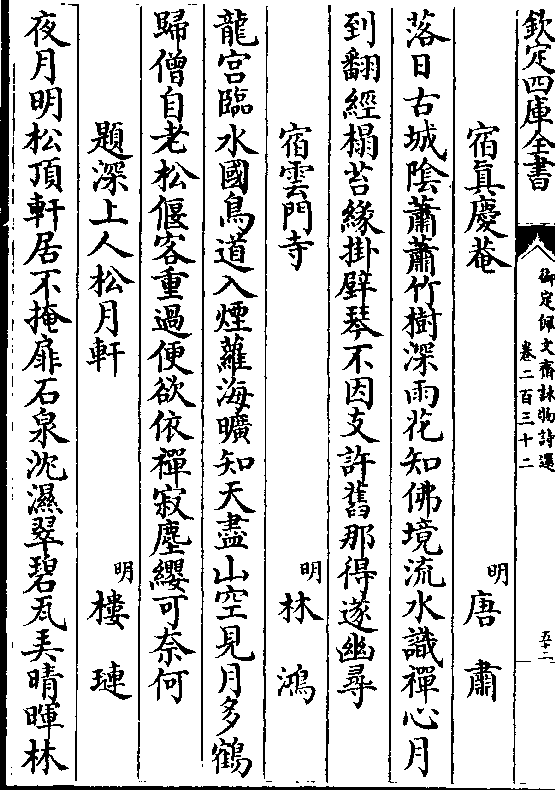 欽定四庫全書
御定佩文齋詠物詩選
卷二百三十二
宿真慶菴
明 唐 肅
落日古城陰蕭蕭竹樹深雨花知佛境流水識禪心月
到翻經榻苔緣掛壁琴不因支許舊那得遂幽尋
宿雲門寺
明 林 鴻
龍宮臨水國鳥道入煙蘿海曠知天盡山空見月多鶴
歸僧自老松偃客重過便欲依禪寂塵纓可奈何
題深上人松月軒
明 樓 璉
夜月明松頂軒居不掩扉石泉沈濕翠碧瓦弄晴暉林